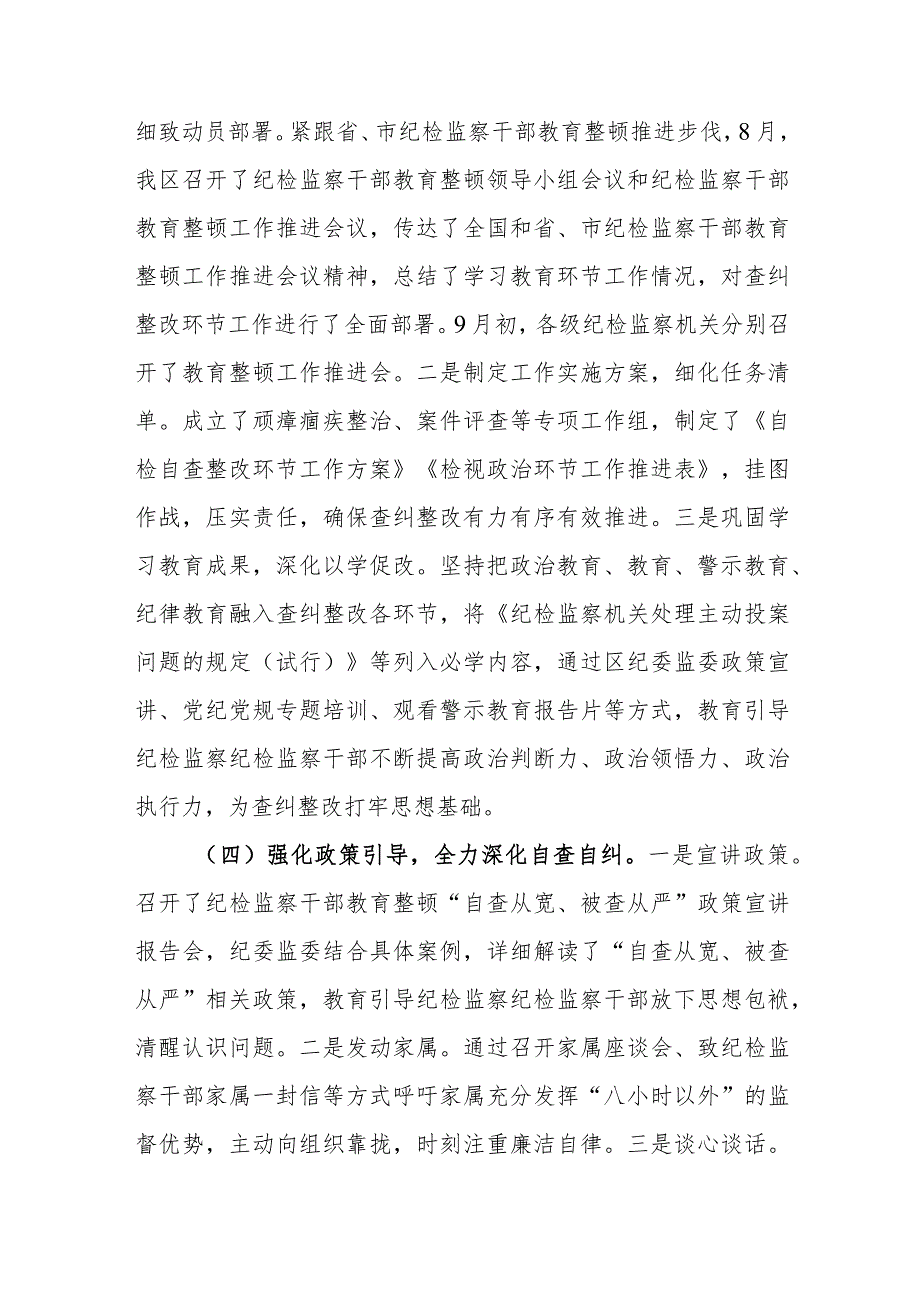 细致动员部署。紧跟省、市纪检监察干部教育整顿推进步伐，8月，
我区召开了纪检监察干部教育整顿领导小组会议和纪检监察干部
教育整顿工作推进会议，传达了全国和省、市纪检监察干部教育
整顿工作推进会议精神，总结了学习教育环节工作情况，对查纠
整改环节工作进行了全面部署。9月初，各级纪检监察机关分别召
开了教育整顿工作推进会。二是制定工作实施方案，细化任务清
单。成立了顽瘴痼疾整治、案件评查等专项工作组，制定了《自
检自查整改环节工作方案》《检视政治环节工作推进表》，挂图
作战，压实责任，确保查纠整改有力有序有效推进。三是巩固学
习教育成果，深化以学促改。坚持把政治教育、教育、警示教育、
纪律教育融入查纠整改各环节，将《纪检监察机关处理主动投案
问题的规定（试行）》等列入必学内容，通过区纪委监委政策宣
讲、党纪党规专题培训、观看警示教育报告片等方式，教育引导
纪检监察纪检监察干部不断提高政治判断力、政治领悟力、政治
执行力，为查纠整改打牢思想基础。
（四）强化政策引导，全力深化自查自纠。一是宣讲政策。
召开了纪检监察干部教育整顿“自查从宽、被查从严”政策宣讲
报告会，纪委监委结合具体案例，详细解读了“自查从宽、被查
从严”相关政策，教育引导纪检监察纪检监察干部放下思想包袱，
清醒认识问题。二是发动家属。通过召开家属座谈会、致纪检监
察干部家属一封信等方式呼吁家属充分发挥“八小时以外”的监
督优势，主动向组织靠拢，时刻注重廉洁自律。三是谈心谈话。